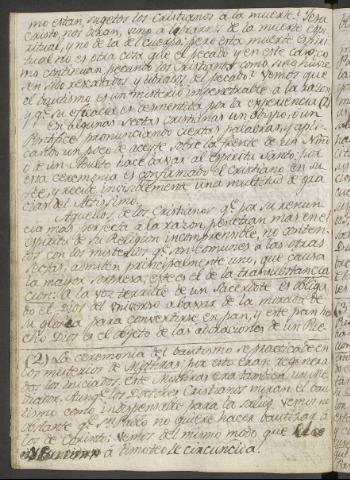 mo estan sugetos los Cristianos à la muerte? Jesu
Cristo, nos diran, vino à librarnos de la muerte espi-
ritual, y no de la del cuerpo; pero esta muerte espiri-
tual no es otra cosa que el pecado y en este caso co-
mo continuan pecando los Cristianos como sino huvie
sen sido rescatados, y librados del pecado? Vemos que
el bautismo es un misterio impenetrable à la razon,
y qe. su eficacia es desmentida por la experiencia (2)
En algunas sectas Cristianas un Obispo, ò un
Pontifice pronunciando ciertas palabras, y apli-
cando un poco de aceyte sobre la frente de un Niño
ò de un Adulto hace baxar al Espiritu Santo; por
esta ceremonia es confirmado el Cristiano en su
fe, y recibe invisiblemente una multitud de gra
cias del Altisimo.
Aquellos de los Cristianos qe. por su renun
cia mas perfecta à la razon, penetran mas en el
espiritu de su Religion incomprensible, no conten-
tos con los misterios qe. son comunes à las otras
sectas, admiten principalmente uno, que causa
la mayor sorpresa, este es el de la transubstancia
cion: A la voz terrible de un Sacerdote es obliga
do el Dios del Universo à baxar de la morada de
su gloria para convertirse en pan, y este pan he
cho Dios es el objeto de las adoraciones de un Pue-
(2) La ceremonia del bautismo se practicaba en
los misterios de Mythras; por esta eran regenera
dos los iniciados. Este Mythras era tambien un me
diador. Aunqe. los Doctores Cristianos miran el bau
tismo como indispensable para la salud, vemos no
obstante qe. Sn. Pablo no quiere hacer bautizar à
los de Corinto; vemos del mismo modo que
à Timoteo le circuncida.